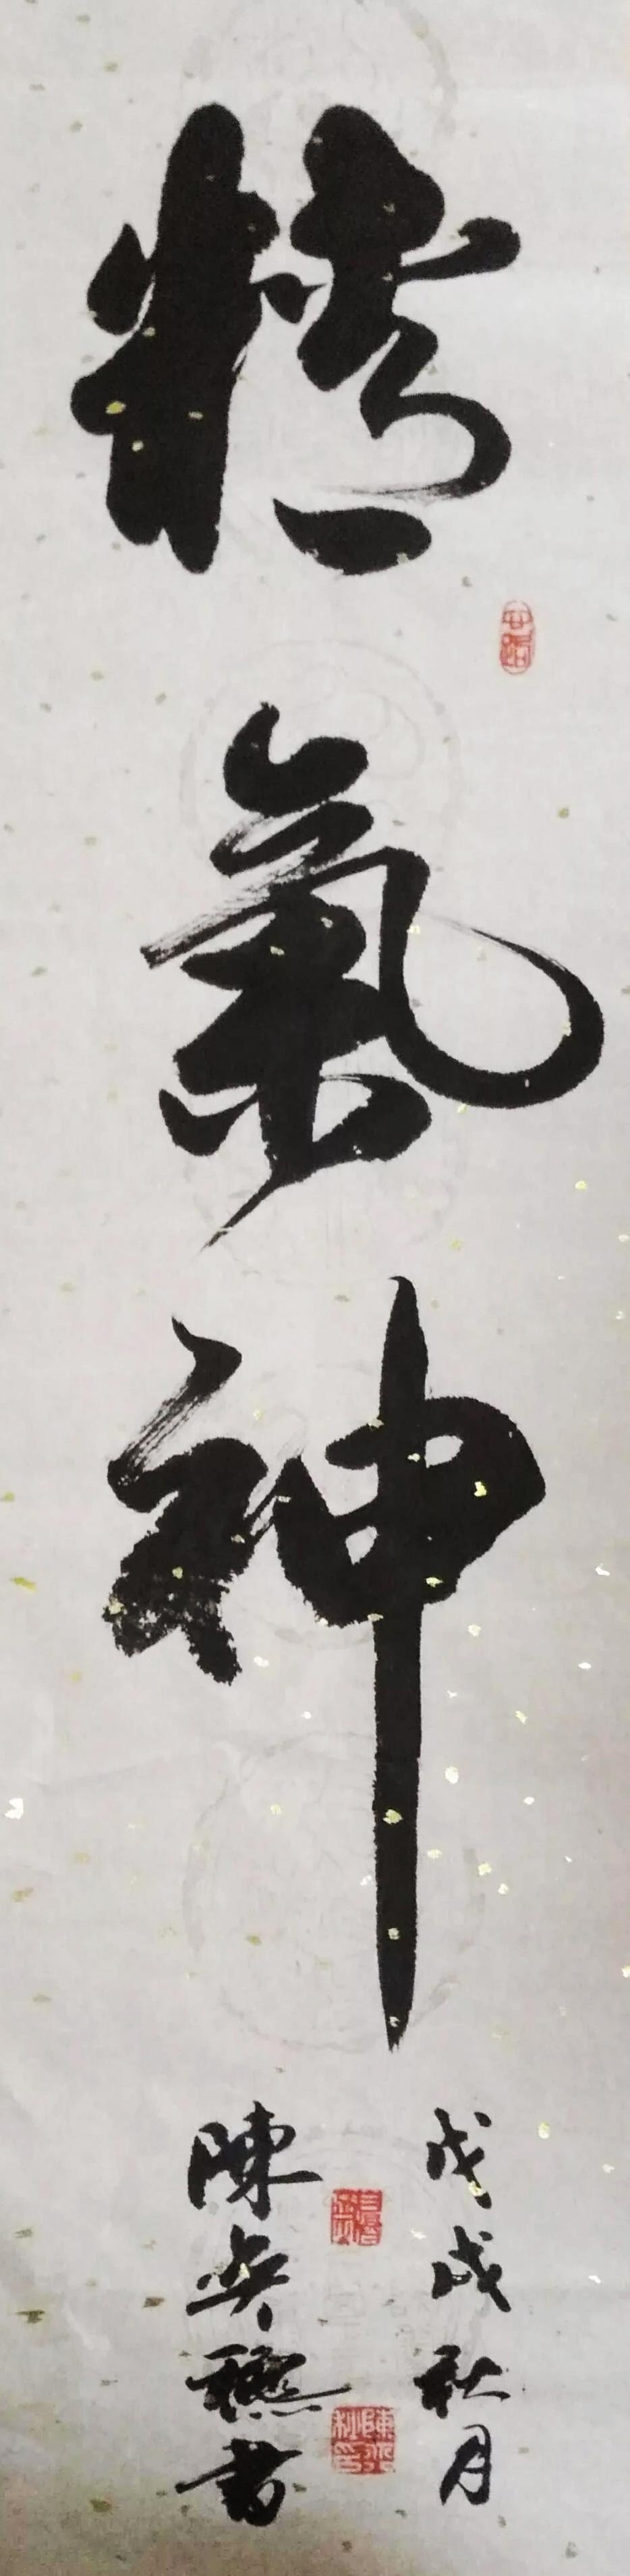 精氣神
戊戌秋月
陳
書